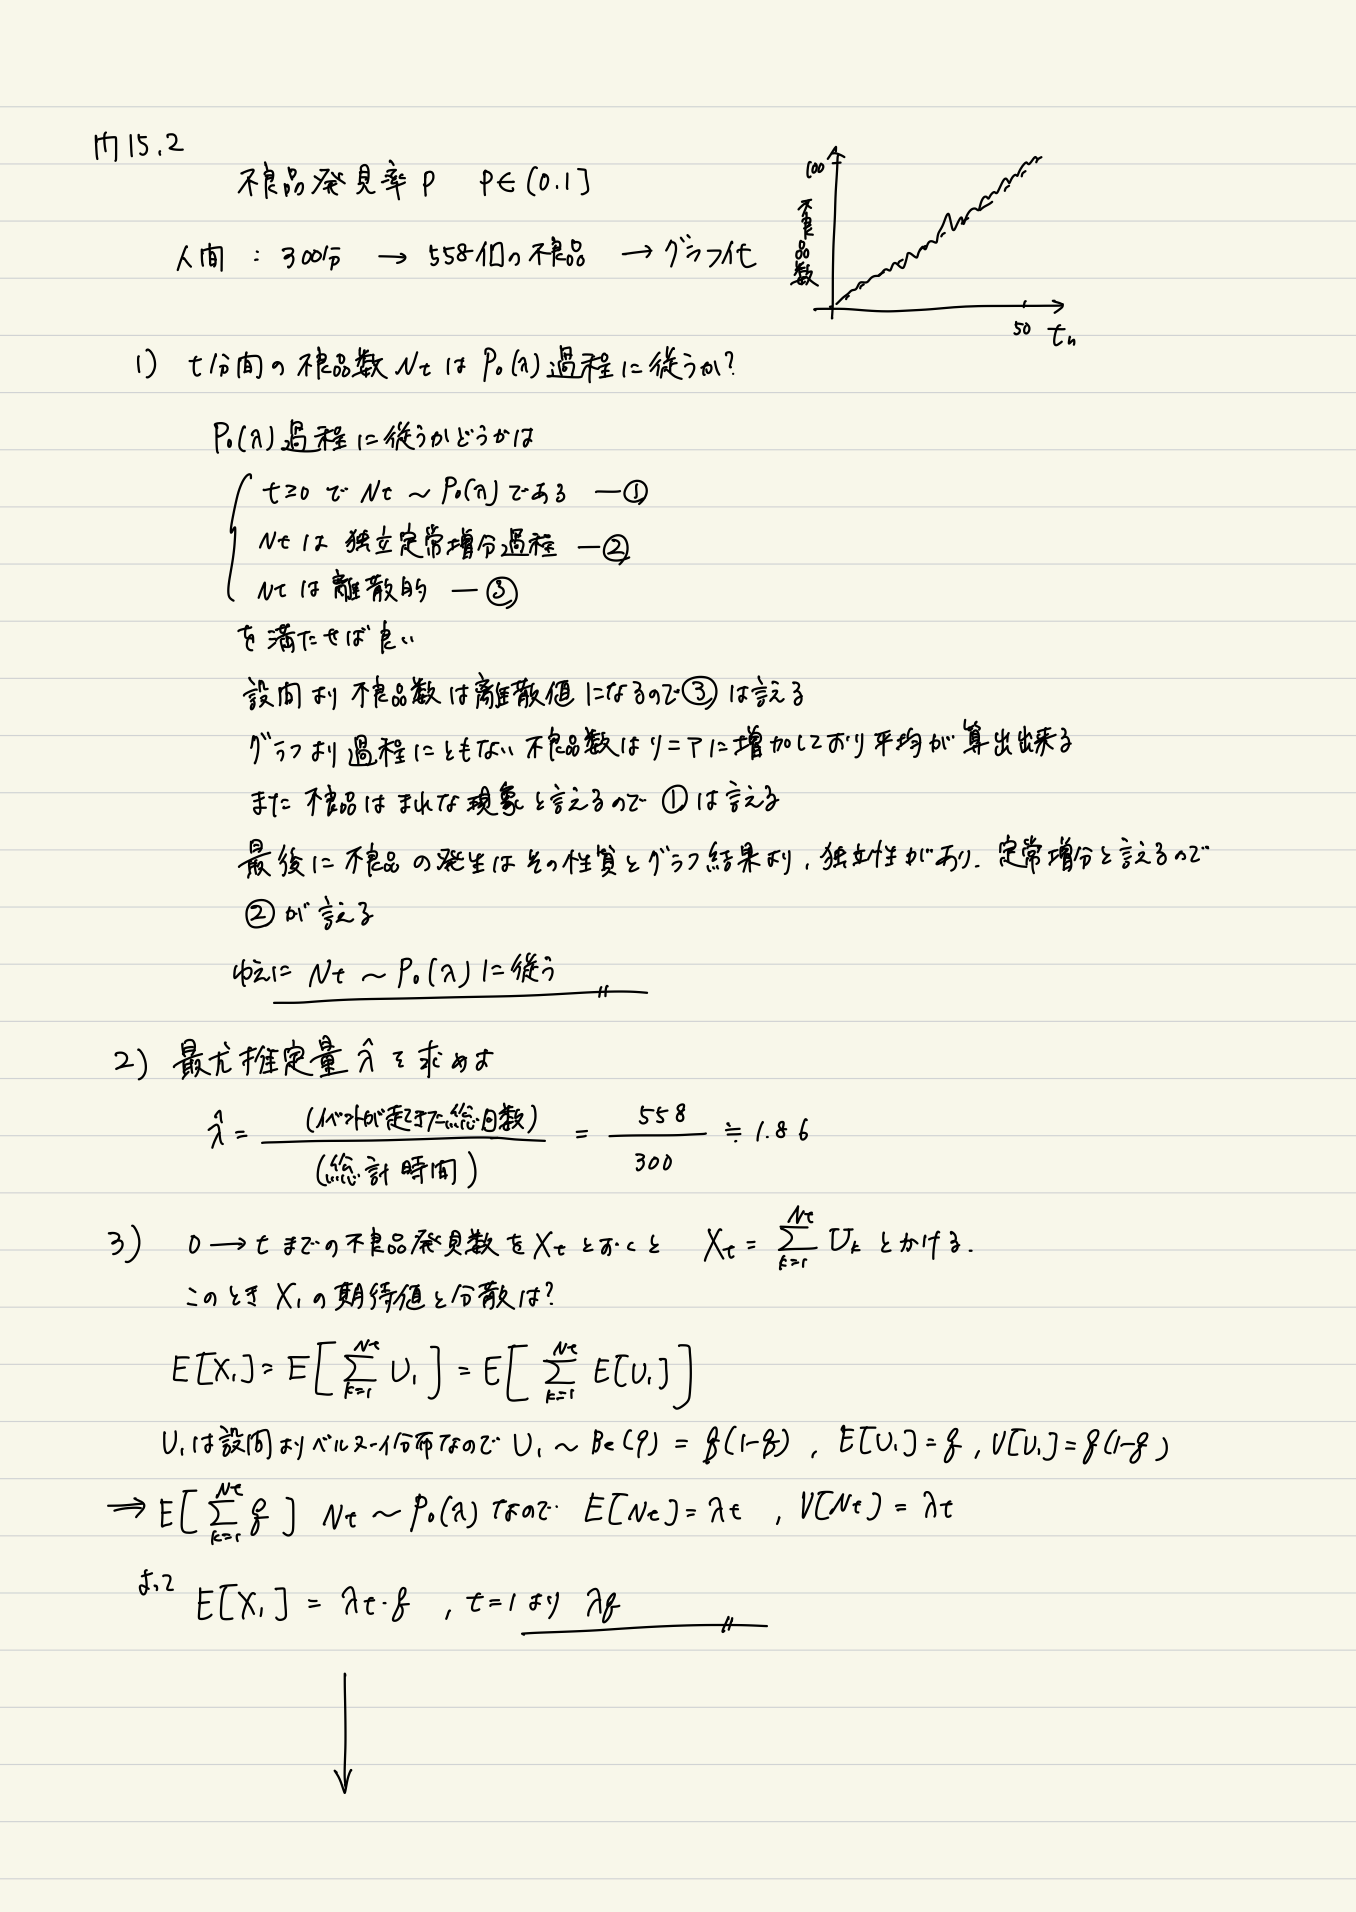 問15.2
不良品発見率 p　p∈(0.1]
人間 : 300分 → 558個の不良品 → グラフ化
100
不良品数
50 tn
1) t分間の不良品数 Nt は Po(λ)過程に従うか?
Po(λ)過程に従うかどうかは
t≥0 で Nt ~ Po(λ)である ―①
Ntは 独立定常増分過程 ―②
Ntは離散的 ―③
を満たせば良い
設問より不良品数は離散値になるので③は言える
グラフより過程にともない不良品数はリニアに増加しており平均が算出出来る
また不良品はまれな現象と言えるので ①は言える
最後に不良品の発生はその性質とグラフ結果より、独立性があり、定常増分と言えるので
②が言える
ゆえに Nt ~ Po(λ)に従う
2) 最尤推定量 λ̂ を求めよ
λ̂ = (イベントが起きた総回数) / (総計時間) = 558 / 300 ≒ 1.86
3) 0 → t までの不良品発見数を Xt とおくと Xt = Σ_{k=1}^{Nt} Uk とかける.
このとき X1 の期待値と分散は?
E[X1] = E[Σ_{k=1}^{Nt} U1] = E[Σ_{k=1}^{Nt} E[U1]]
U1は設問よりベルヌーイ分布なので U1 ~ Be(q) = q(1-q) , E[U1]=q , V[U1]=q(1-q)
⇒ E[Σ_{k=1}^{Nt} q] Nt ~ Po(λ) なので E[Nt] = λt , V[Nt] = λt
よって E[X1] = λt・q , t=1より λq